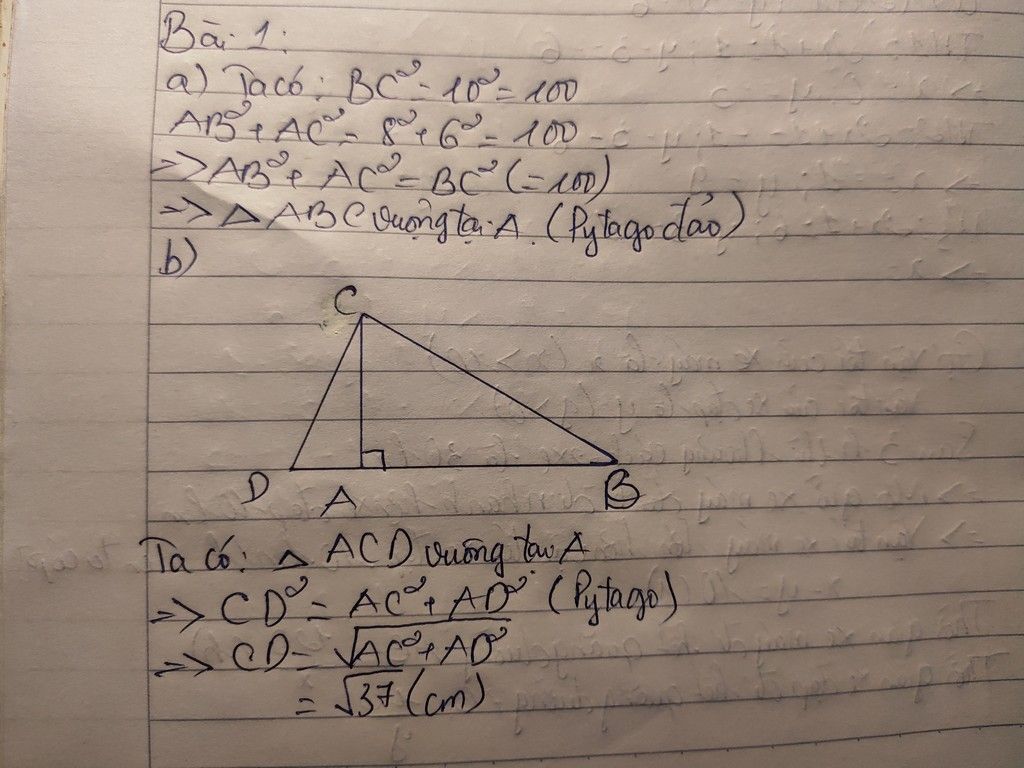 Bài 1:
a) Ta có: BC² = 10² = 100
AB² + AC² = 8² + 6² = 100
=> AB² + AC² = BC² (=100)
=> △ ABC vuông tại A. (Pytago đảo)
b)
C
D A B
Ta có: △ ACD vuông tại A
=> CD² = AC² + AD² (Pytago)
=> CD = √AC² + AD²
= √37 (cm)